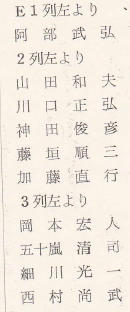 E1列左より
阿部武弘
2列左より
山田和夫
川口正弘
神田俊彦
藤垣順三
加藤直行
3列左より
岡本宏人
五十嵐清司
細川光一
西村尚武